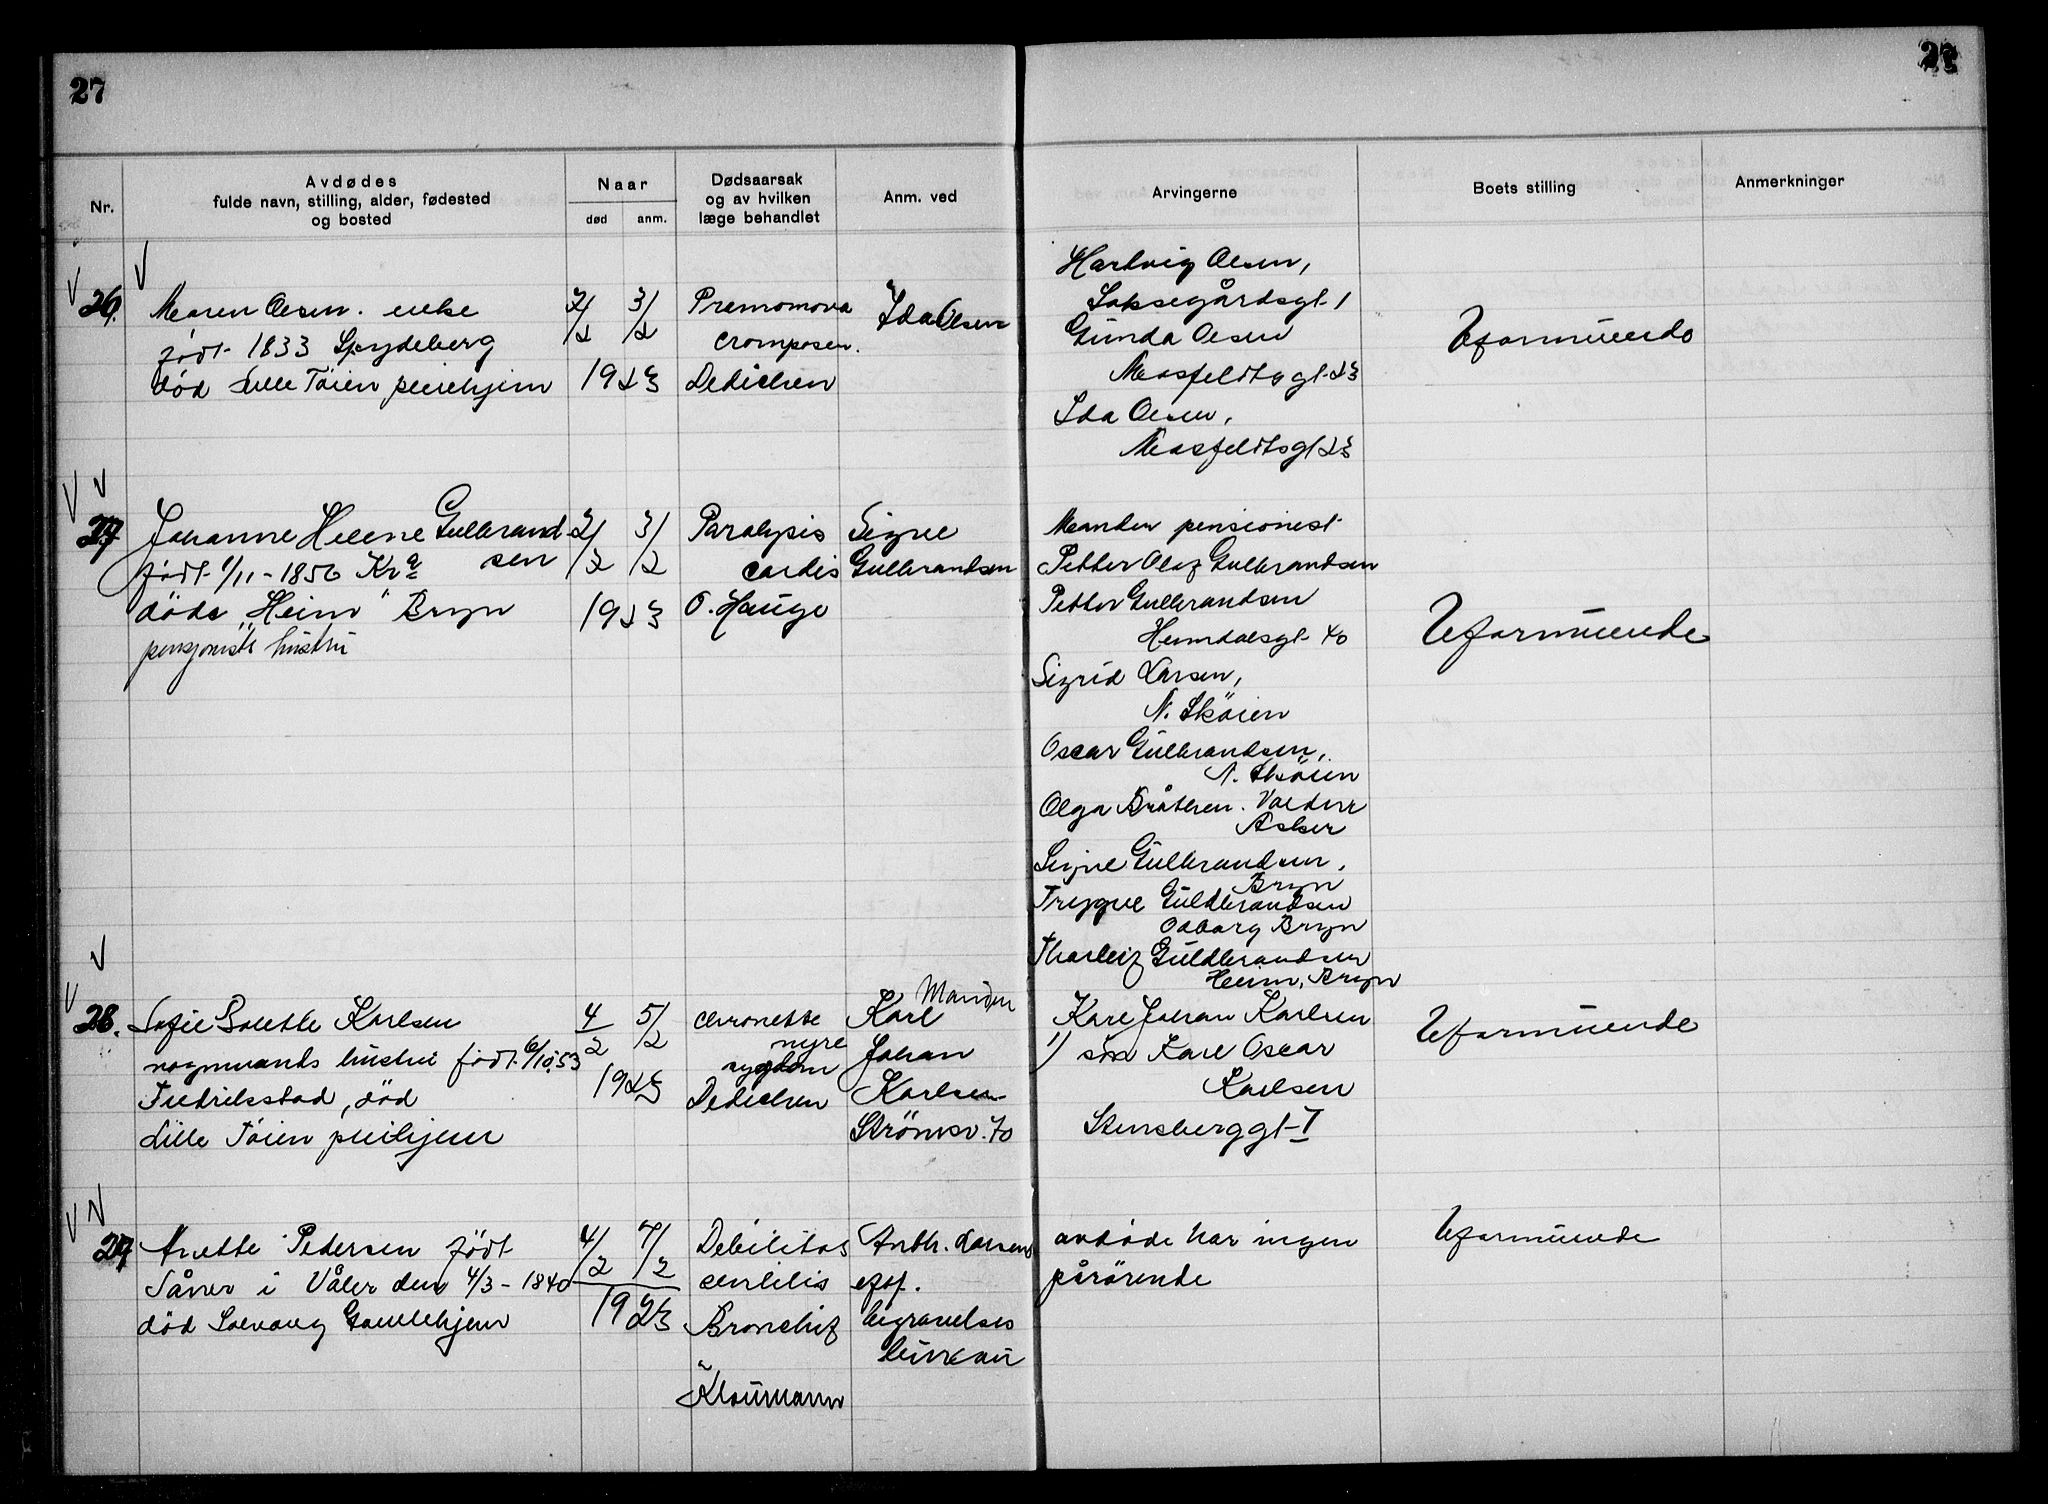 27
27
Nr.
Avdødes
fulde navn, stilling, alder, fødested
og bosted
Naar
død
anm.
Dødsaarsak
og av hvilken
læge behandlet
Anm. ved
Arvingerne
Boets stilling
Anmerkninger
26.
Maren Olsen. enke
født 1833 Spydeberg
død Lille Tøien pleiehjem
2/2
3/2
1923
Dedichen
Ida Olsen
Hartvig Olsen,
Gunda Olsen
Ida Olsen,
Uformuende
27
Johanne Helene Gulbrand
sen
født 1/11-1856 Kra
døde "Heim" Bryn
pensjonists hustru
2/2
3/2
1923
Paralysis
cordis
O. Hauge
Signe
Gulbrandsen
Manden pensionist
Petter Olaf Gulbrandsen
Petter Gulbrandsen
Heimdalsgt 40
Sigrid Larsen,
N. Skøien
Oscar Gulbrandsen,
N. Skøien
Olga Bråthen.
Asker
Signe Gulbrandsen,
Bryn
Trygve Guldbrandsen
Bryn
Thorleif Guldbrandsen
Heim, Bryn
Uformuende
28.
Sofie Karlsen
vognmands hustru født 6/10.53
Fredriksstad, død
Lille Tøien pleihjem
4/2
5/2
1923
nyre
sygdom
Dedichen
Manden
Karl
Johan
Karlsen
Strömsv. 70
Karl Johan Karlsen
1) søn Karl Oscar
Karlsen
Stensberggt I
Uformuende
29
Anette Pedersen født
Såner i Våler den 4/3-1840
død Solvang Gamlehjem
4/2
7/2
1923
Debilitas
senilis
Bronchit
Klaumann
Anth. Larsens
eftf.
begravelses
bureau
avdøde har ingen
pårørende
Uformuende